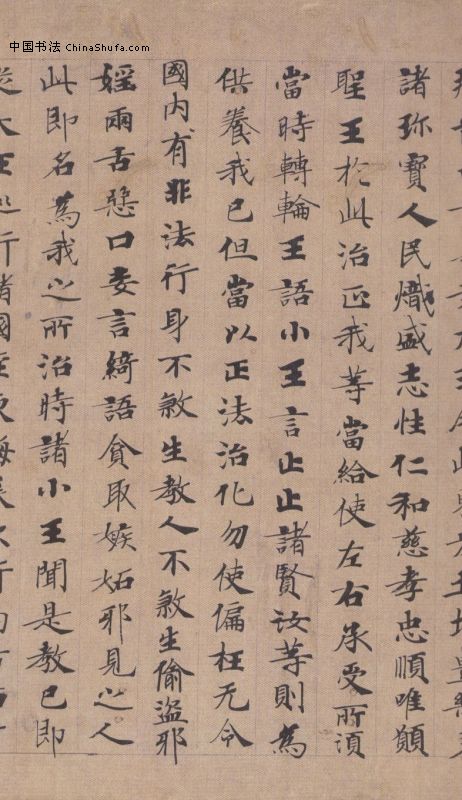 中国书法 ChinaShufa.com
王今此東方土地豐
諸珎寶人民熾盛志性仁和慈孝忠順唯願
聖王於此治正我等當給使左右承受所須
當時轉輪王語小王言止止諸賢汝等則為
供養我已但當以正法治化勿使偏枉无令
國內有非法行身不煞生教人不煞生偷盜邪
婬兩舌惡口妄言綺語貪取嫉妬邪見之人
此即名為我之所治時諸小王聞是教已即
從大王巡行諸國至東海表次行南方西